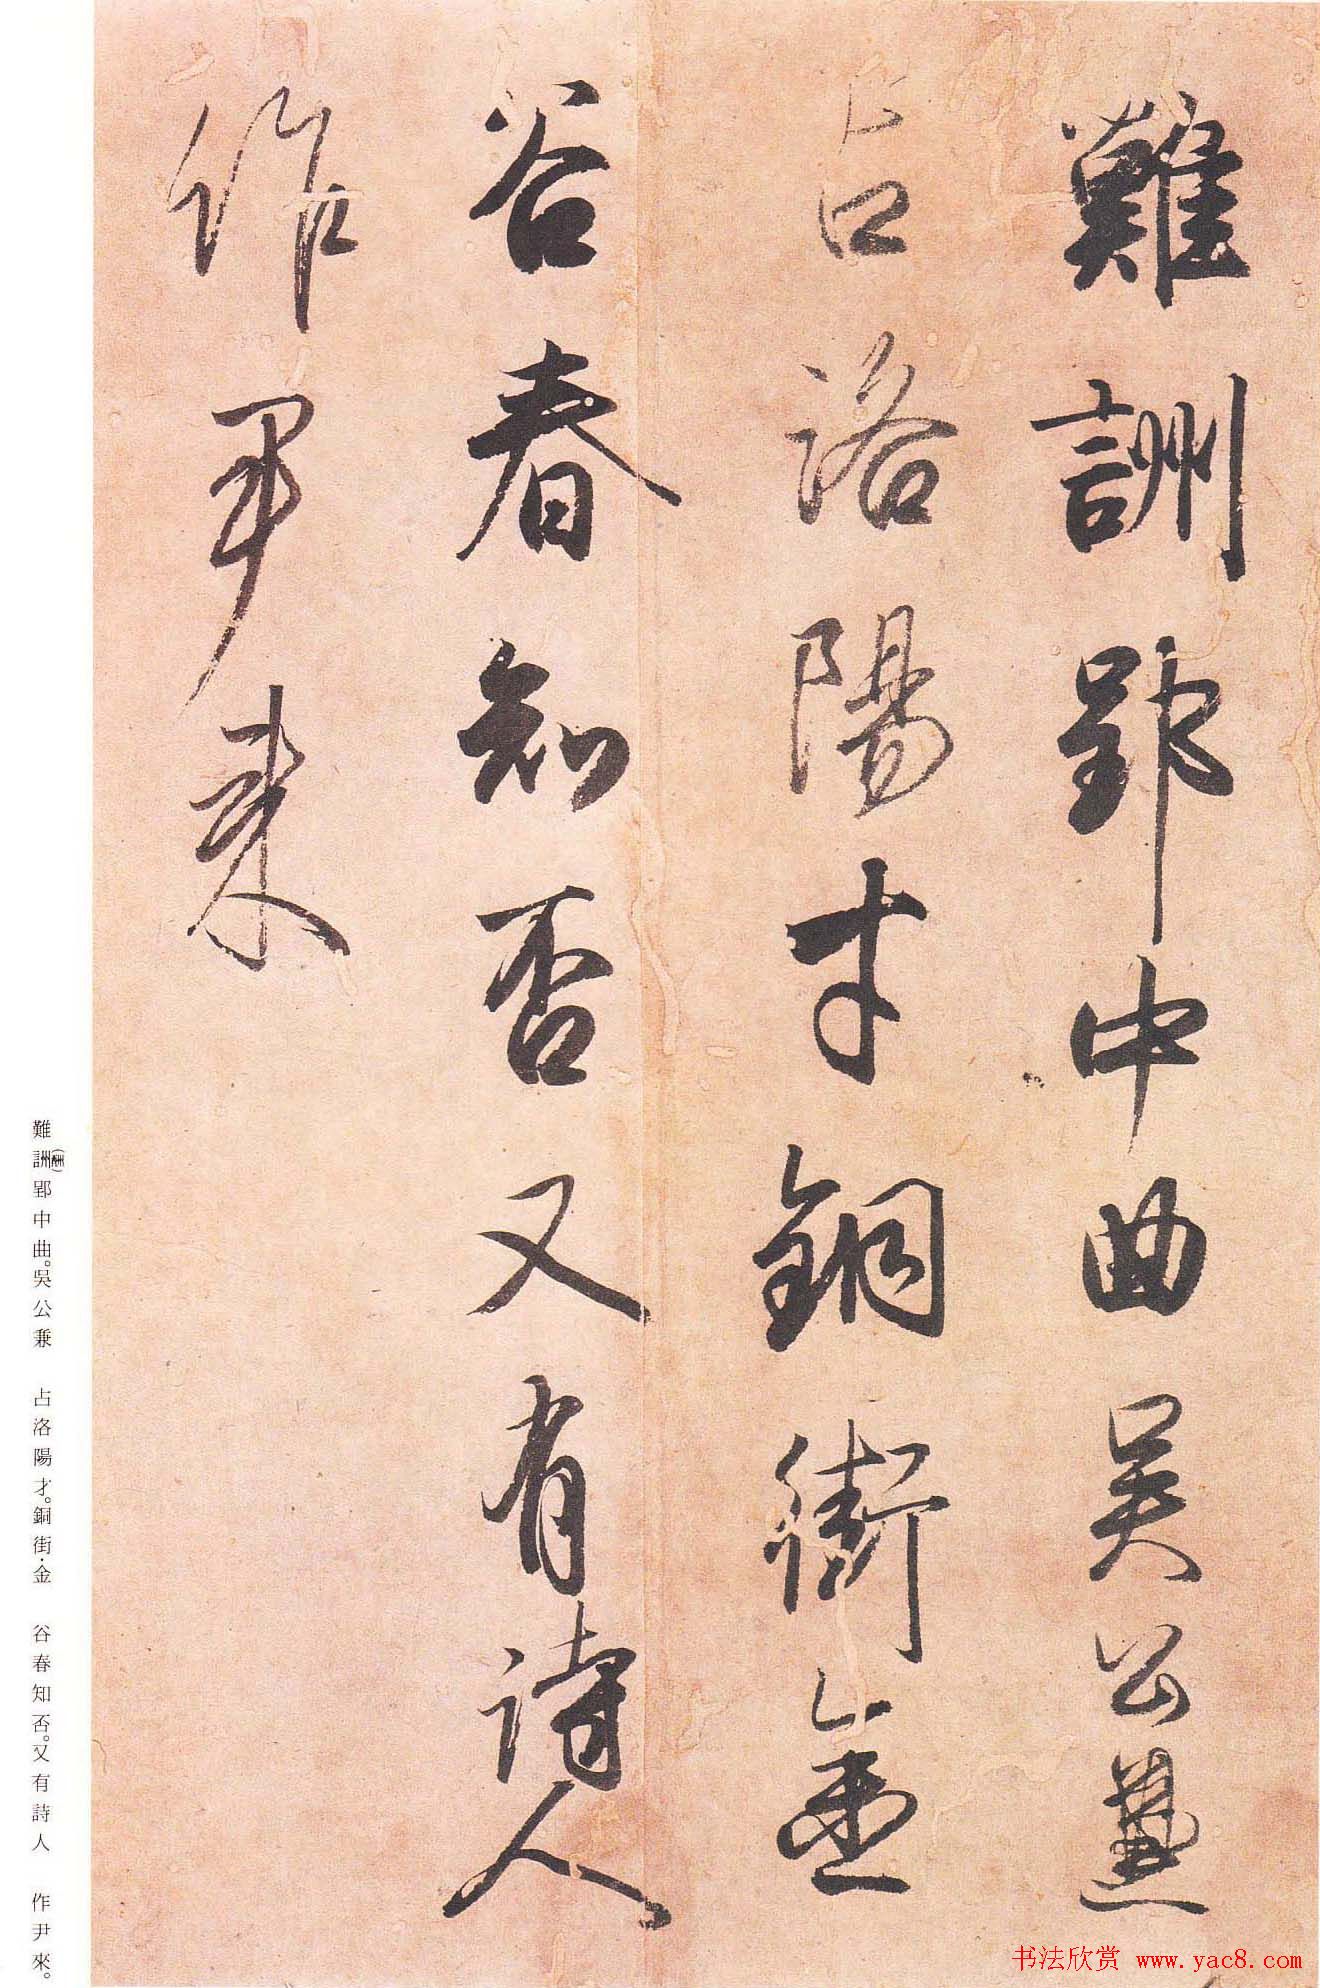 難詶郢中曲吴公蒹
占洛陽才銅街金
谷春知否又有詩人
作尹来
難詶(酬)郢中曲。吳公蒹 占洛陽才。銅街·金 谷春知否。又有詩人 作尹來。
书法欣赏 www.yac8.com